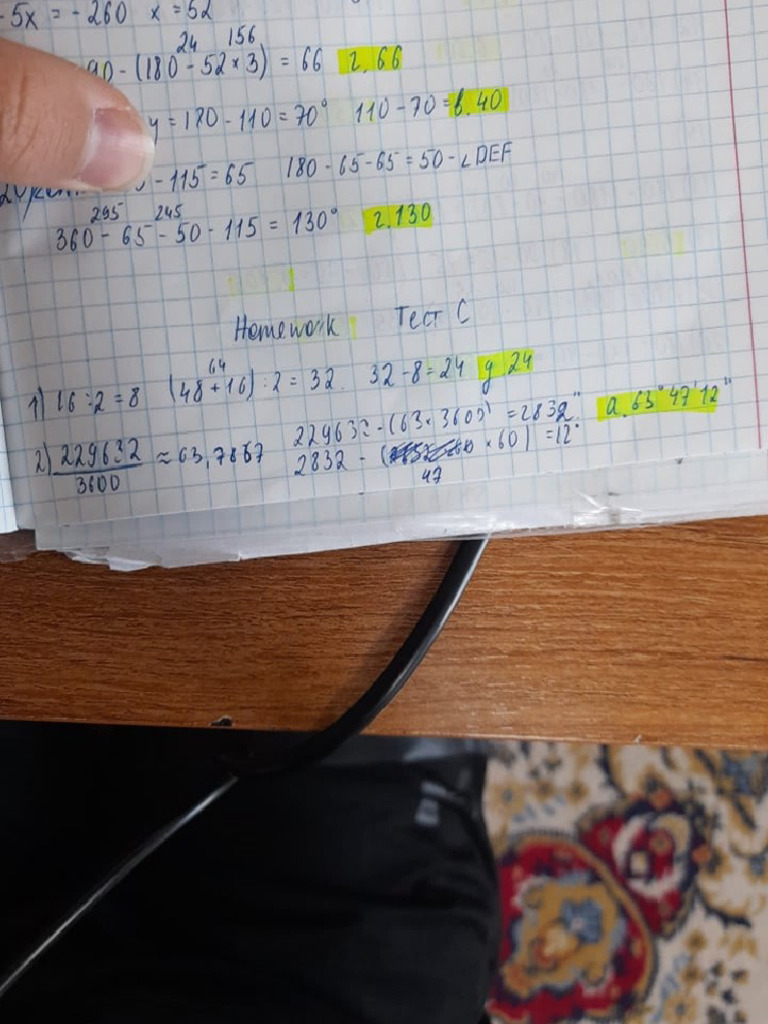 - 5x = - 260 x = 52
24 156
90 - (180 - 52 × 3) = 66 г. 66
y = 180 - 110 = 70° 110 - 70 = в. 40
- 115 = 65 180 - 65 - 65 = 50 - ∠DEF
295 245
360 - 65 - 50 - 115 = 130° г. 130
Homework Тест С
64
1) 16 : 2 = 8 (48 + 16) : 2 = 32. 32 - 8 = 24 д 24
2) 229632 / 3600 ≈ 63,7867 229632 - (63 × 3600) = 2832" а. 63° 47' 12"
2832 - (47 × 60) = 12"